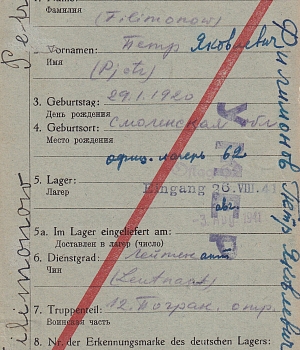 Фамилия
(Filimonow)
Vornamen: Петр Яковлевич
Имя
(Pjotr)
3. Geburtstag: 29.1.1920
День рождения
4. Geburtsort: Смоленская обл
Место рождения
офиц. лагерь 62
5. Lager:
Лагерь
Eingang 26. VIII. 41
авг.
5a. Im Lager eingeliefert am:
Доставлен в лагерь (число)
6. Dienstgrad: Лейтенант
Чин
(Leutnant)
7. Truppenteil: 12. Погран. отр.
Воинская часть
8. Nr. der Erkennungsmarke des deutschen Lagers:
Филимонов Петр Яковлевич